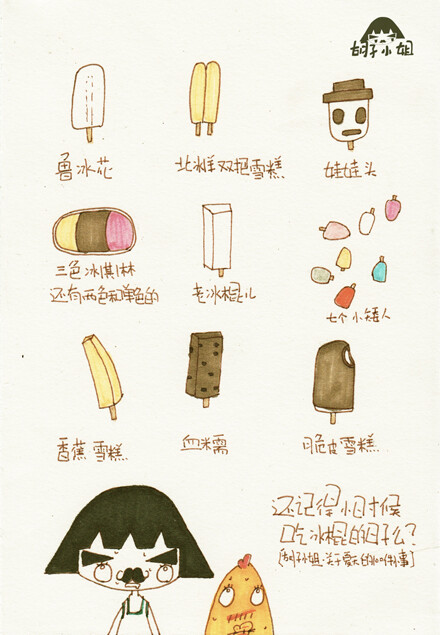 胡子小姐
鲁冰花
北冰洋双把雪糕
娃娃头
三色冰淇淋
还有两色和单色的
老冰棍儿
七个小矮人
香蕉雪糕
血米需
脆皮雪糕
还记得小时候
吃冰棍的日子么?
[胡子小姐·关于夏天的100件事]